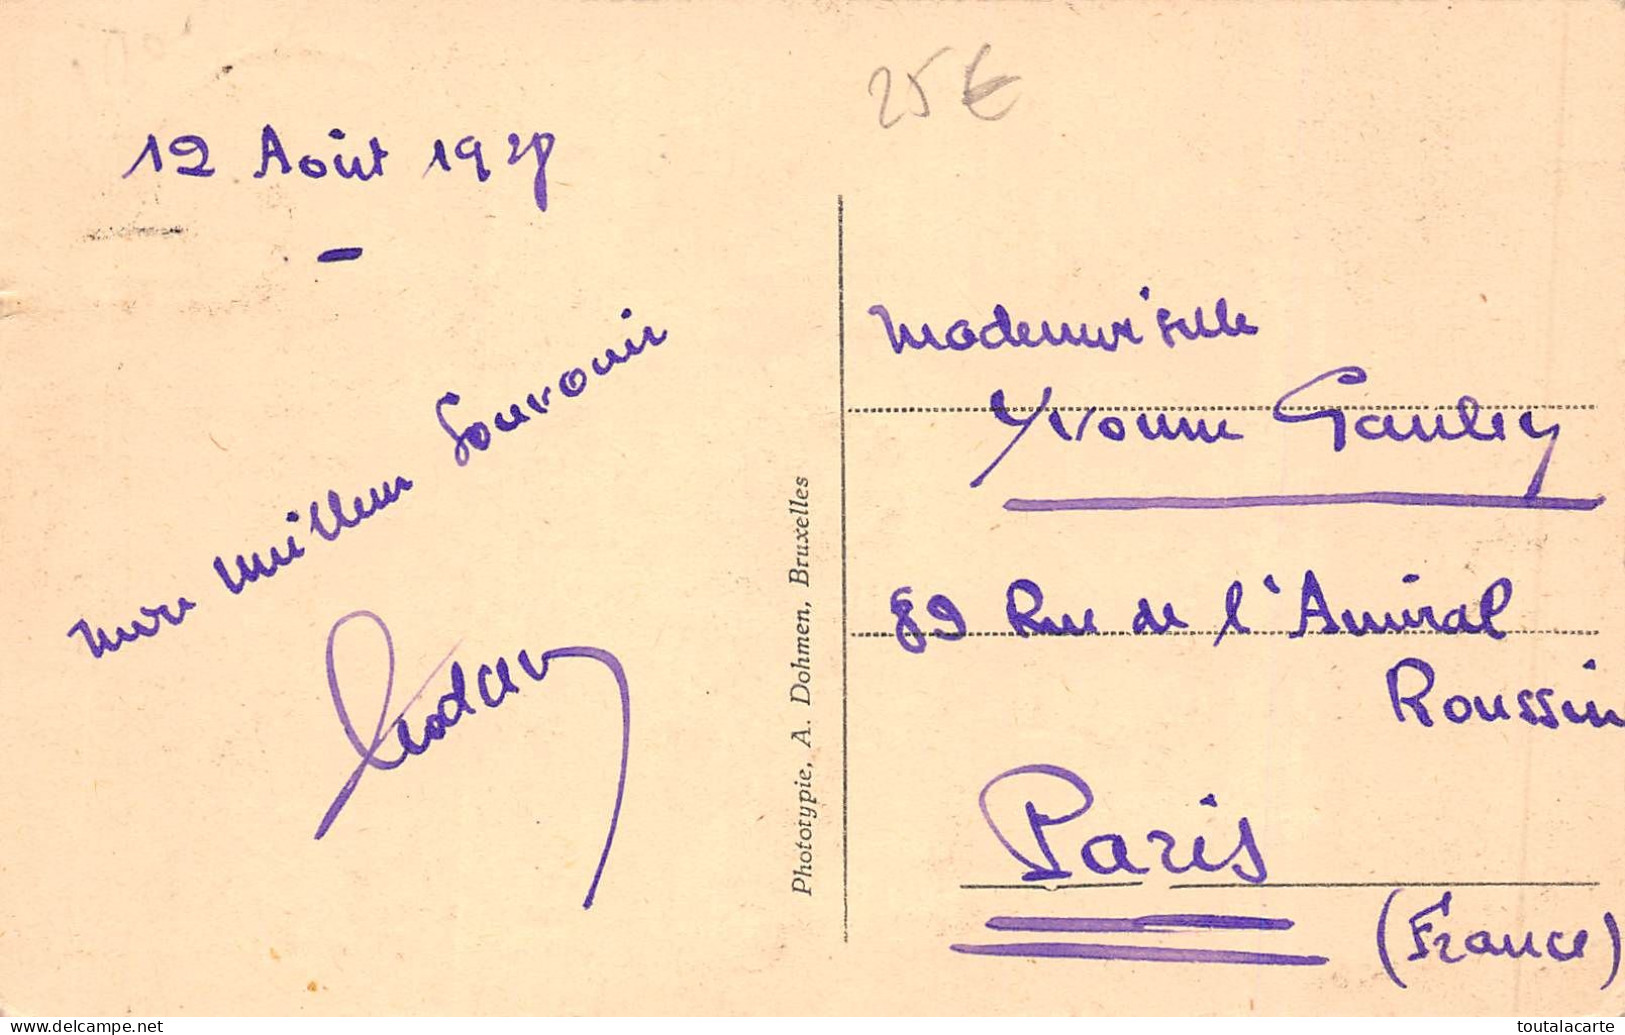 25€
12 Août 19
mon meilleur Souvenir
Mademoiselle
Yvonne
89 Rue de l'Amiral
Roussin
Paris
(France)
Phototypie, A. Dohmen, Bruxelles
delcampe.net
toutalacarte